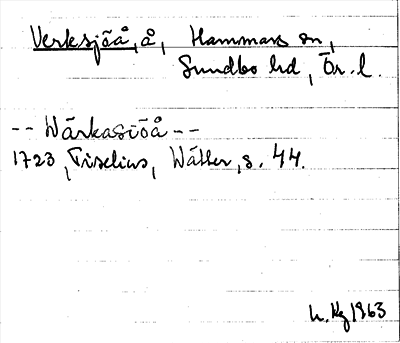 Verksjöå, å, Hammars sn,
Sundbo hd, Ör. l.
-- Wärkasiöå --
1723, Tiselius, Wätter, s. 44.
1963